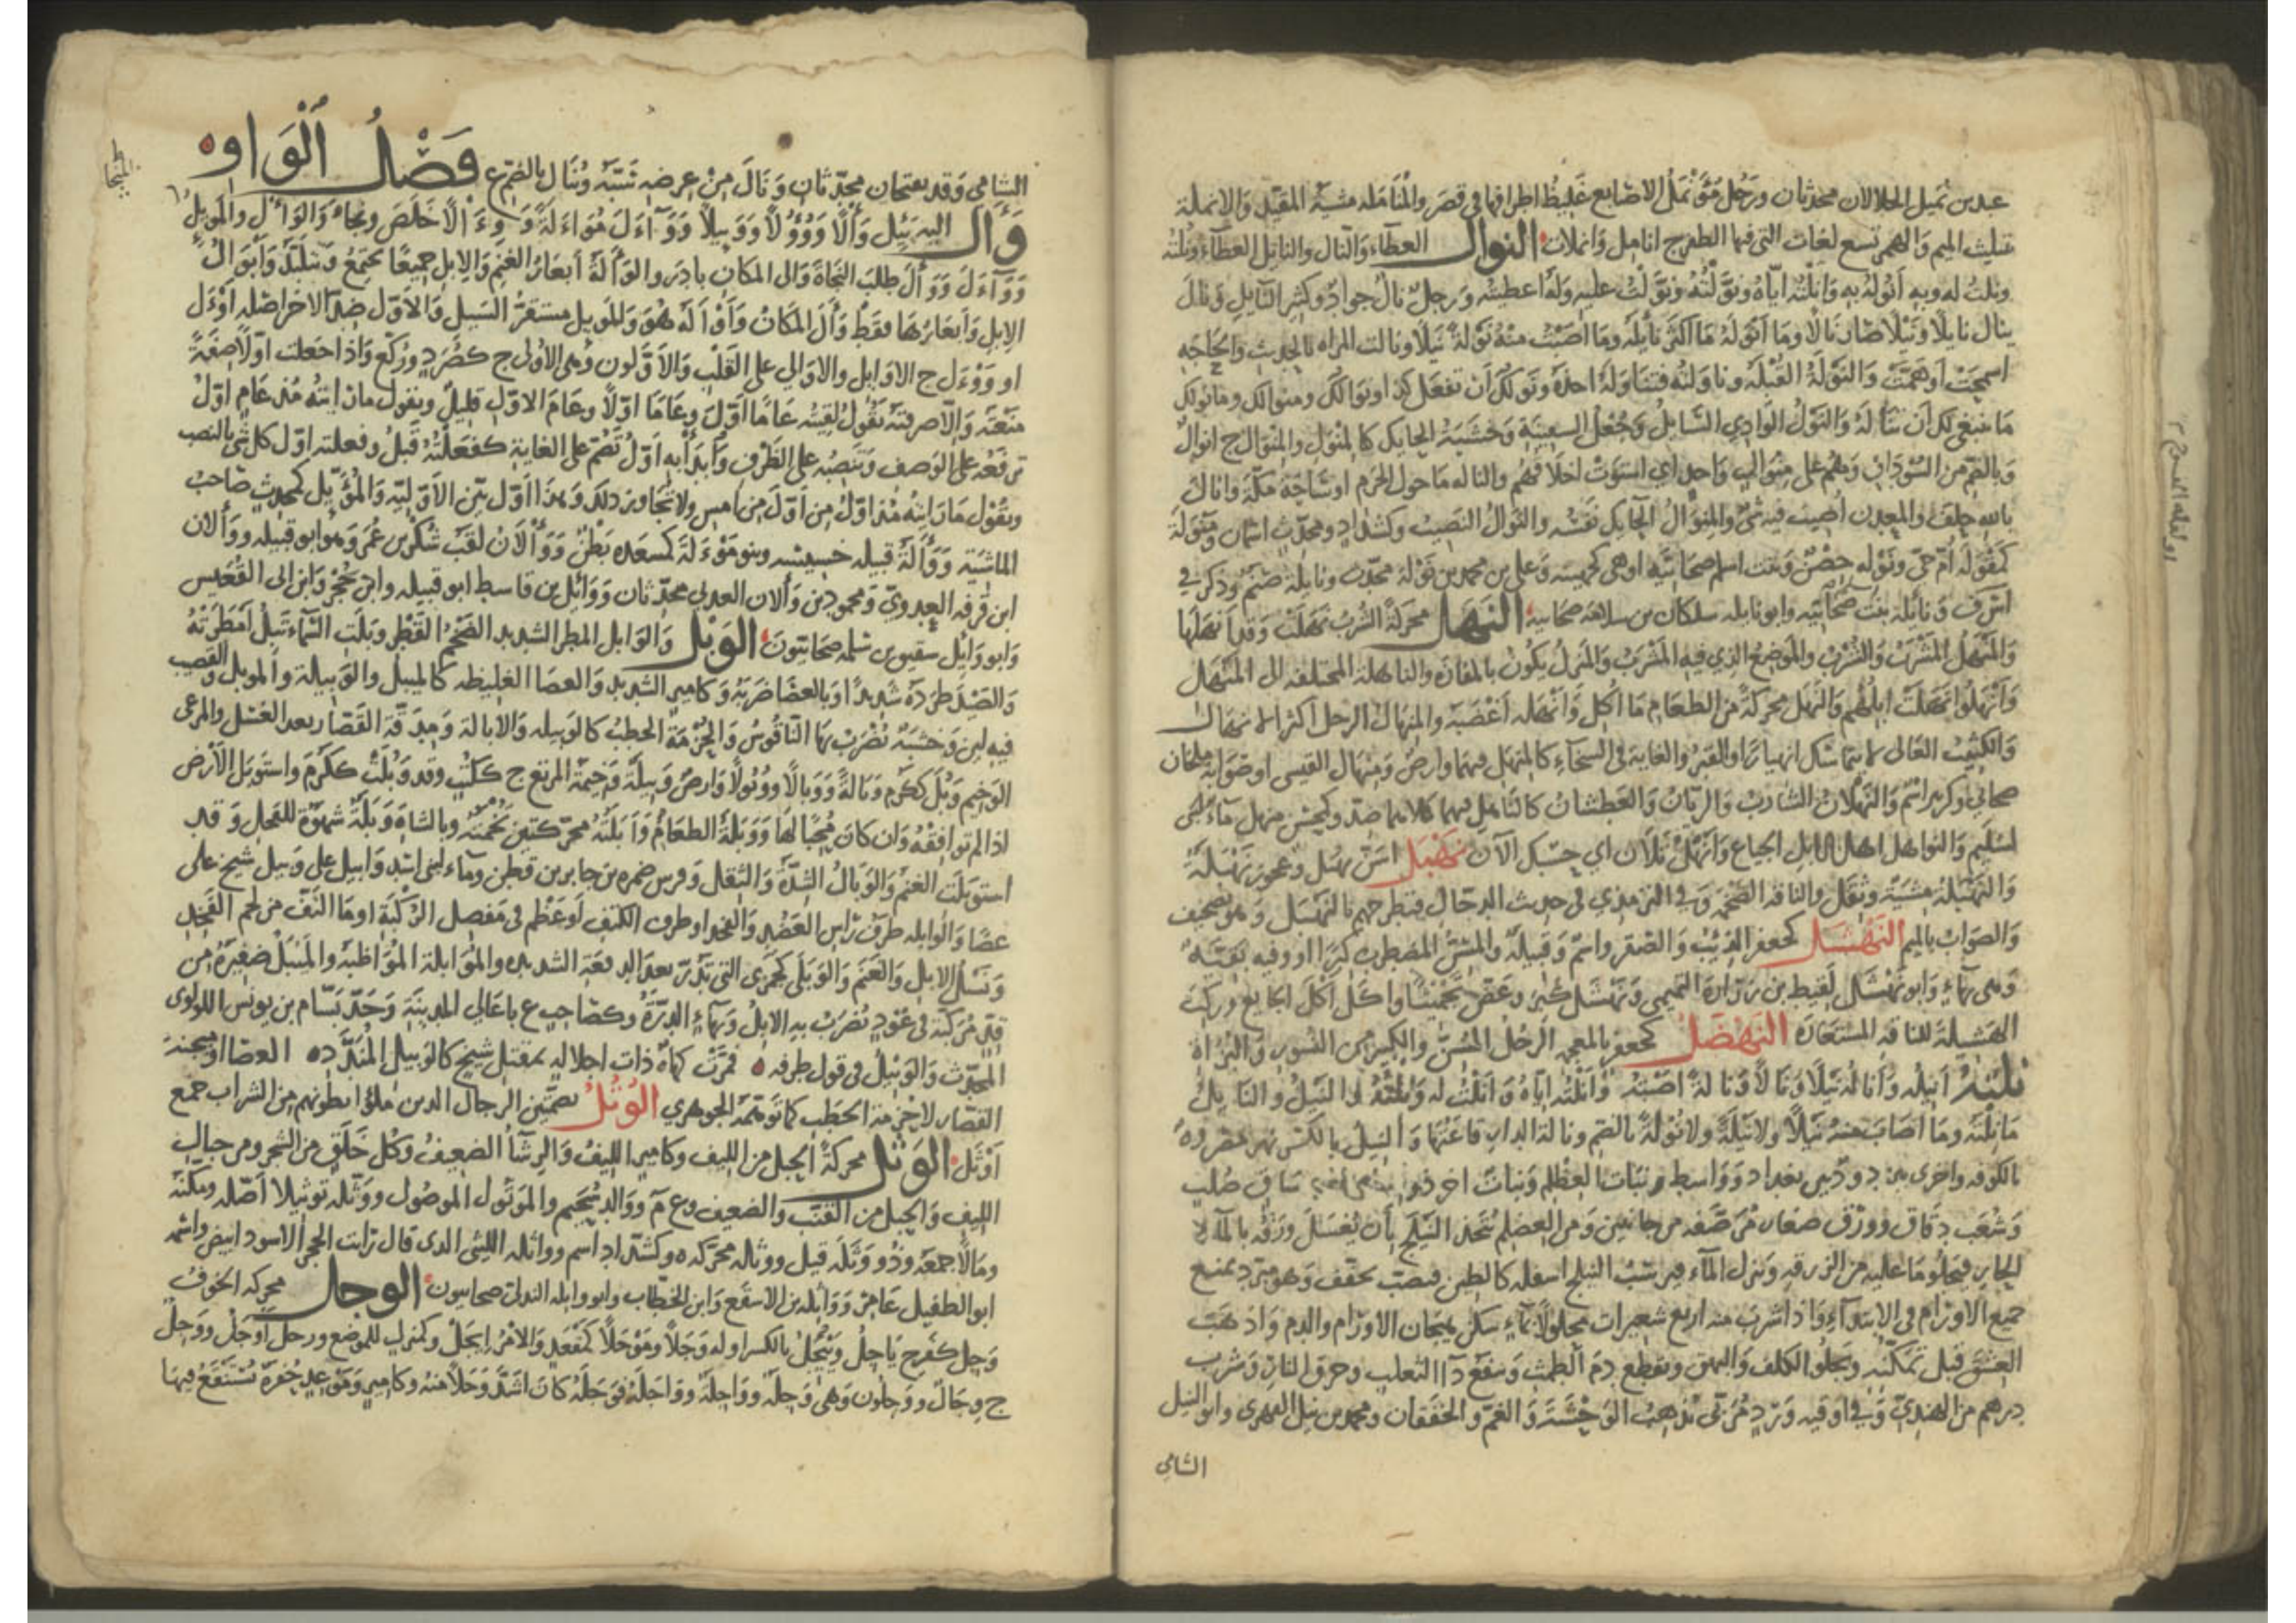 عبد بن نميل الحلالان محدثان ورجل مؤنمل الاصابع غليظ اطرافها في قصر والمنامله مشية المقيد والانملة
بتثليث الميم والهمز تسع لغات التي فيها الظفر ج انامل وانملات النوال العطاء والنال والنايل العطاء ونلته
ونلت له وبه انوله به وانلته اياه ونولته ونولت عليه وله اعطيته ورجل نال جواد او كثير النايل ونال
ينال نايلا ونيلا صار نالا وما انوله ما اكثر نايله وما اصبت منه نولة نيلا ونالت المراه بالحديث والحاجه
اسمحت او همت والنولة القبلة وناولته فتناوله اخذه ونولك ان تفعل كذا ونوالك ومنوالك وما نولك
ما ينبغي لك ان تناله والنول الوادي السايل وجعل السفينة وخشبة الحايك كالمنول والمنوال ج انوال
وبالضم من السودان وهم على منوال واحد اي استوت اخلاقهم والناله ما حول الحرم او ساحة مكة وانال
بالله حلف والمعدن اصيب فيه شئ والمنوال الحايك نفسه والنوال النصيب وكشداد ومحدث اسمان ومنولة
كمقولة ام حي ونوله حصن وبنت اسلم صحابيه او هي كجهينه وعلي بن محمد بن نولة محدث ونايلة صنم وذكر في
اس ف ونائلة بنت صحابيه وابو نايله سلكان بن سلامة صحابية النهل محركة الشرب نهلت وقد انهلها
والمنهل المشرب والشرب والموضع الذي فيه المشرب والمنزل يكون بالمفازة والناهلة المختلفه الى المنهل
وانهلوا نهلت ابلهم والنهل محركة من الطعام ما اكل وانهله اغضبه والمنهال الرجل الكثير الانهال
والكثيب العالي لا يتماسك انهيارا والقبر والغاية في السخاء كالمنهل فيهما وارض ومنهال القيسي او صوابه ملحان
صحابي وكزبير اسم والنهلان الشارب والريان والعطشان كالناهل فيهما كلاهما ضد وكمحسن منهل ماء لبني
سليم والنواهل الابل الجياع وانهل ثلان اي حسبك الآن نهبل اسن نهبل وعجوز نهبلة
والنهبلة مشية وثقل والناقة الضخمه وفي الترمذي في حديث الدجال فتطرحهم بالنهبل وهو تصحيف
والصواب بالميم النهشل كجعفر الذيب والصقر واسم وقبيلة والمسن المضطرب كبرا او وفيه بقية
وهي بهاء وابو نهشل لقيط بن زرارة التميمي ونهشل كبر وعض تجميشا واكل اكل الجايع وركب
الهشيلة للناقة المستعارة النهضل كجعفر بالمعجمه الرجل المسن والكبير من النسور والبزاة
نلته انيله وأناله نيلا ونالا ونالة اصبته وانلته اياه وانلت له ونلته والنيل والنايل
ما نلته وما اصاب منه نيلا ولا نيلة ولا نولة بالضم ونالة الدار قاعتها والنيل بالكسر نهر مصر وة
بالكوفه واخرى بيزد ود بين بغداد وواسط ونبات العظلم ونبات اخر ذو ساق صلب
وشعب دقاق وورق صغار مرصفه من جانبين ومن العظلم يتخذ النيلج بأن يغسل ورقه بالماء
الحار فيجلو ما عليه من الزرقه ويترك الماء فيرسب النيلج اسفله كالطين فيصب ويجفف وهو مبرد يمنع
جميع الاورام في الابتداء واذا شرب منه اربع شعيرات محلولا بماء سكن هيجان الاورام والدم واذهب
العشق قبل تمكنه ويجلو الكلف والبهق ويقطع دم الطمث وينفع داء الثعلب وحرق النار وشرب
درهم من الهندي في اوقيه ورد مربى يذهب الوحشة والغم والخفقان ومحمد بن نيل الفهري وابو النيل
الشامي
الشامي وقد يفتحان محدثان ونال من عرضه سبه ونال بالضم ع فصل الواو
وأل اليه يئل وألا ووؤولا ووييلا وواءل مواءلة ووءالا خلص ونجا والوأل والموئل
وواءل ووأل طلب النجاة والى المكان بادر والوألة ابعار الغنم والابل جميعا تجتمع وتتلبد وأبوال
الابل وابعارها فقط وأل المكان وأوأله هو والموئل مستقر السيل والاول ضد الاخر اصله اوءل
او ووءل ج الاوايل والاوالي على القلب والاولون وهي الاولى ج كصرد وركع واذا جعلت اولا صفة
منعته والا صرفته تقول لقيته عاما اول وعاما اولا وعام الاول قليل وتقول ما رايته مذ عام اول
ترفعه على الوصف وتنصبه على الظرف وابدأ به اول تضم على الغاية كفعلته قبل وفعلته اول كل شئ بالنصب
وتقول ما رايته مذ اول من اول من امس ولا تجاوز ذلك وهذا اول بين الاوليه والموئل كمحدث صاحب
الماشية ووألة قبيله خسيسه وبنو موءلة كمسعده بطن ووألان لقب شكر بن عمرو وهو ابو قبيله ووألان
ابن قرفه العدوي ومحمود بن وألان العدني محدثان ووائل بن قاسط ابو قبيله وابن حجر وابن ابي القعيس
وابو وايل شقيق بن سلمه صحابيون الوبل والوابل المطر الشديد الضخم القطر وبلت السماء تبل امطرته
والصيد طرده شديدا وبالعصا ضربه وكامير الشديد والعصا الغليظه كالميبل والوبيلة والموبل والقضيب
فيه لين وخشبة يضرب بها الناقوس والحزمة الحطب كالوبيله والابالة ومدقة القصار بعد الغسل والمرعى
الوخيم وبل ككرم وبالة ووبالا ووبولا وارض وبيلة وخيمة المرتع ج ككتب وقد وبلت ككرم واستوبل الارض
اذا لم توافقه وان كان محبا لها ووبلة الطعام وابلته محركتين تخمته وبالشاة وبلة شهوة للفحل وقد
استوبلت الغنم والوبال الشدة والثقل وفرس ضمره بن جابر بن قطن وماء لبني اسد وابيل على وبيل شيخ على
عصا والوابله طرف راس العضد والفخذ او طرف الكتف او عظم في مفصل الركبة او ما التف من لحم الفخذ
ونسل الابل والغنم والوبلى كجمزى التي تدر بعد الدفعة الشديده والموابلة المواظبة والميبل ضفيرة من
قد مركبة في عود يضرب به الابل وبهاء الدرة وكصاحب ع باعالي المدينة وجد بسام بن يونس اللولوي
المحدث والوبيل في قول طرفه فمرت كهاة ذات خيف جلاله عقيلة شيخ كالوبيل العصا او ميجنة
القصار لا حزمة الحطب كما توهمه الجوهري الوتل بضمتين الرجال الذين ملؤا بطونهم من الشراب جمع
اوتل الوثل محركة الحبل من الليف وكامير الليف والرشأ الضعيف وكل خلق من الشجر ومن حبال
الليف والحبل من القنب والضعيف وع م ووالد سحيم والموثول الموصول ووثله توثيلا اصله ومكنه
ومالا جمعه وذو وثلة قيل ووثاله محركه وكشداد اسم وواثله الليثي الذي قال رايت الحجر الاسود ابيض واسمه
ابو الطفيل عامر وواثله بن الاسقع وابن الخطاب وابو واثله الهذلي صحابيون الوجل محركه الخوف
وجل كفرح ياجل وييجل بالكسر اوله وجلا وموجلا كمقعد والامر ايجل وكمنزل للموضع ورجل اوجل ووجل
ج وجال ووجلون وهي وجلة وواجلة وواجله فوجله كان اشد وجلا منه وكامير وموعد حفرة يستنقع فيها